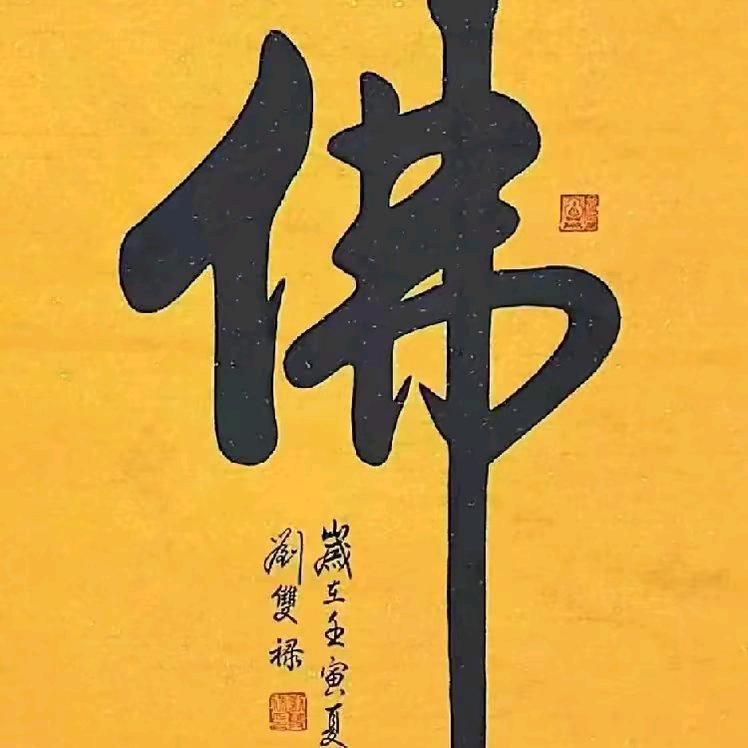 佛
歲在壬寅夏
劉雙禄